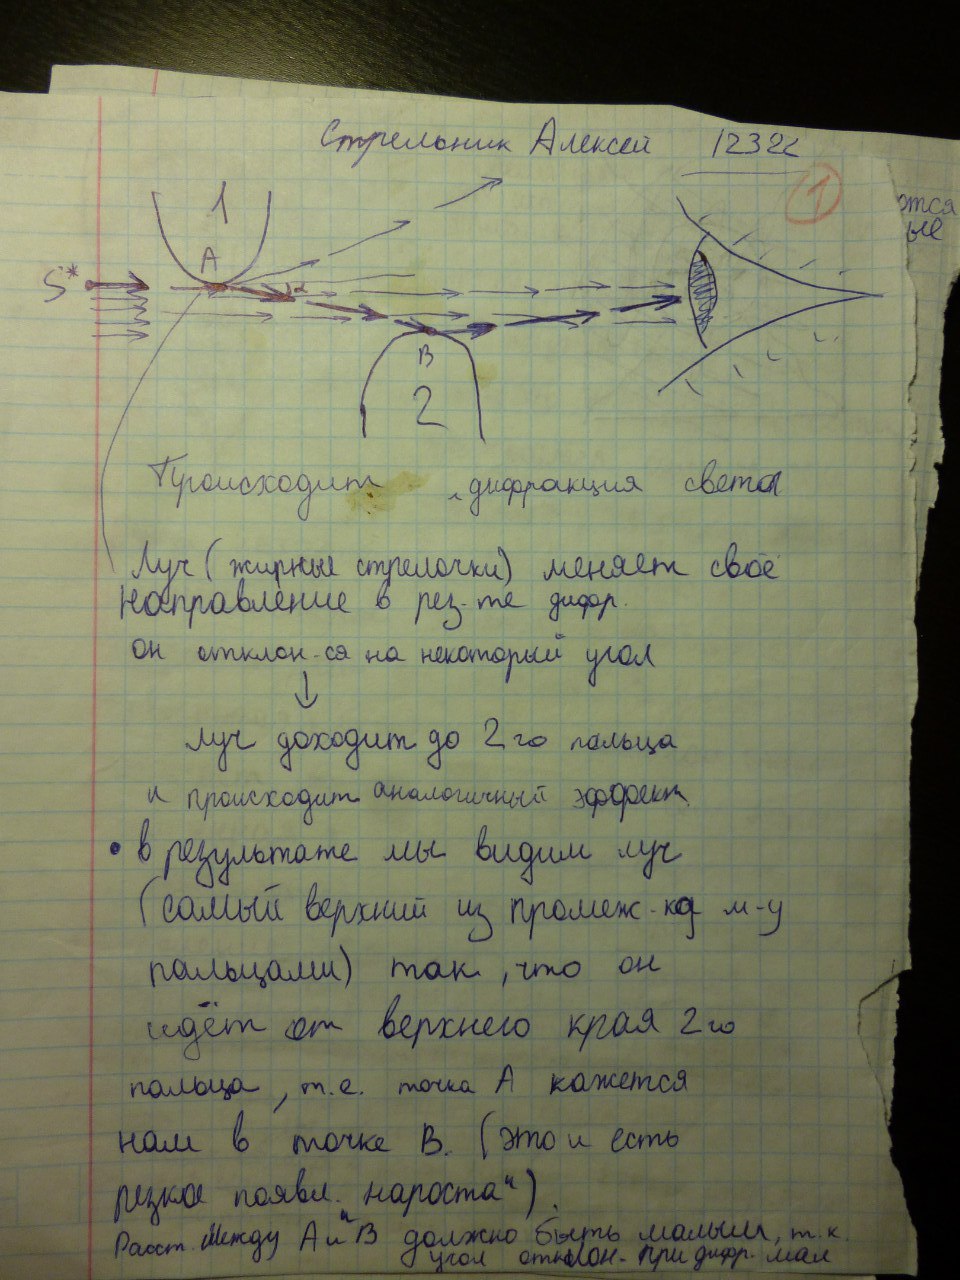 Стрельник Алексей 12322
1
ются
ые
1
A
S*
α
B
2
Происходит дифракция света
Луч (жирные стрелочки) меняет своё
направление в рез-те дифр.
он отклон-ся на некоторый угол
↓
луч доходит до 2го пальца
и происходит аналогичный эффект
• в результате мы видим луч
(самый верхний из промеж-ка м-у
пальцами) так, что он
идёт от верхнего края 2го
пальца, т.е. точка A кажется
нам в точке B. (это и есть
резкое появл. "нароста")
Расст. между A и B должно быть малым, т.к.
угол отклон. при дифр. мал